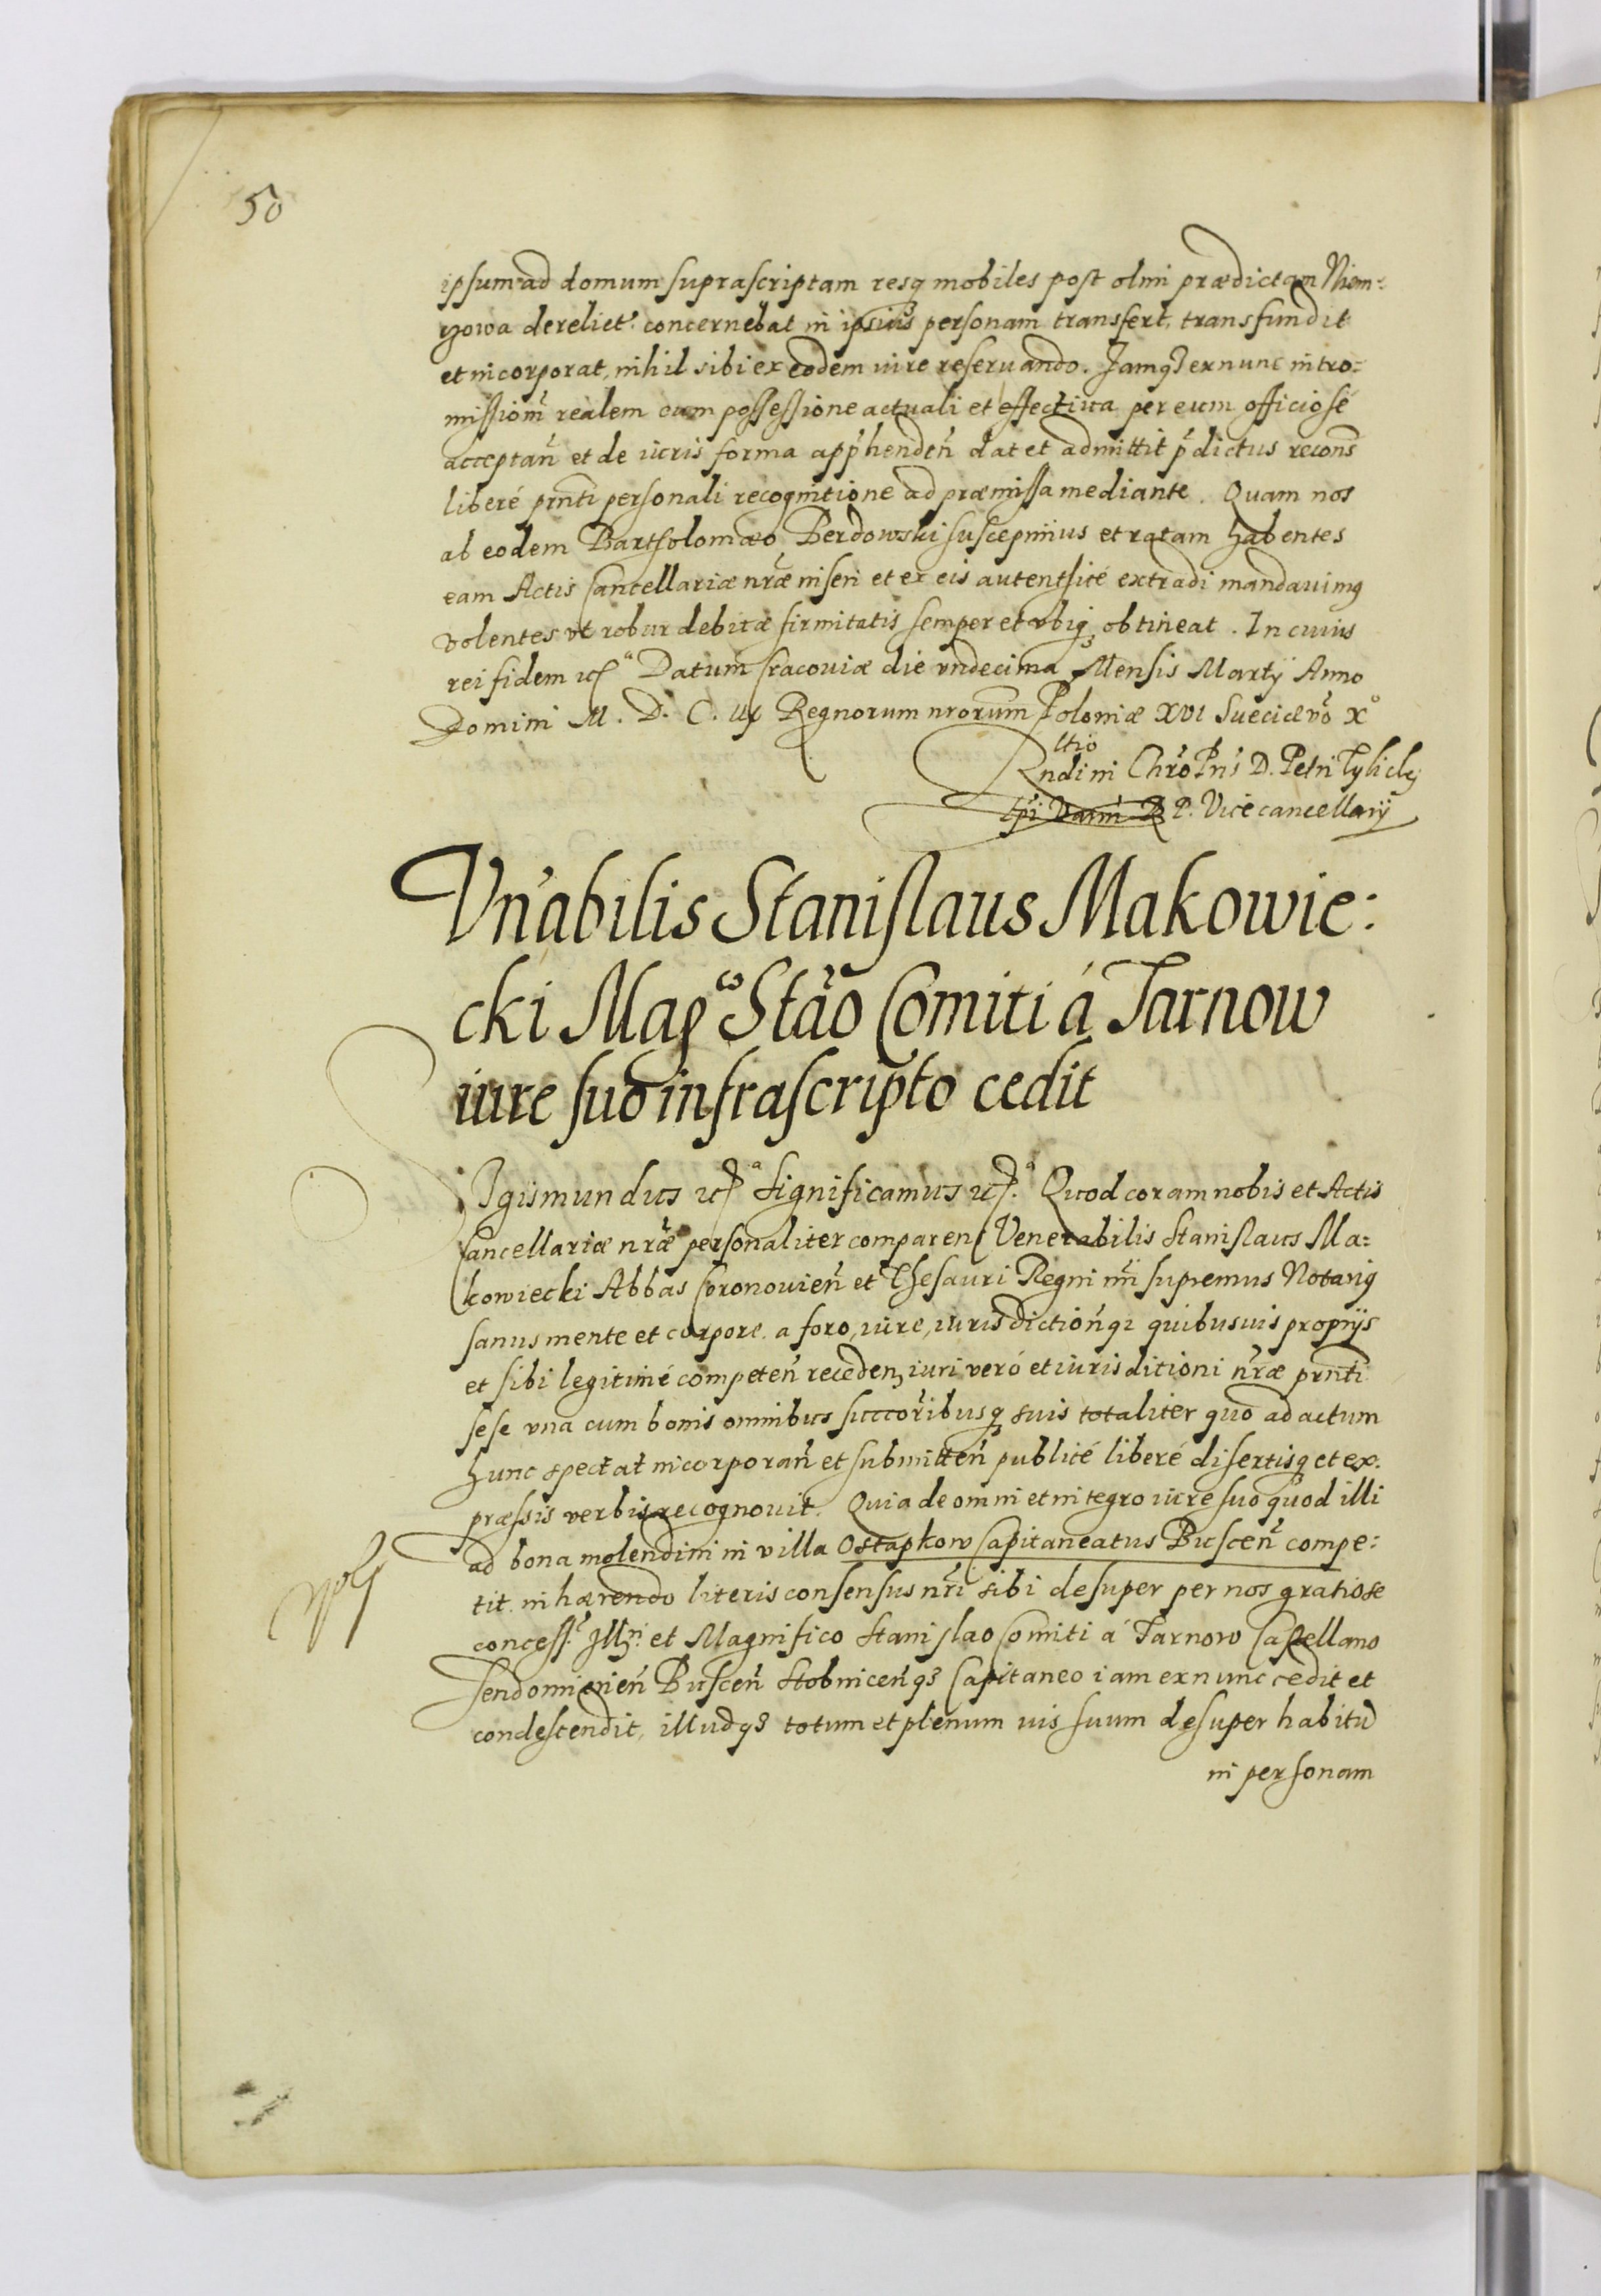 50
ipsum ad domum suprascriptam resq mobiles post olim prædictam Niem:
rzowa derelict: concernebat in ipsius personam transfert, transfundit
et incorporat, nihil sibi ex eodem iure reseruando. Jamq3 ex nunc intro:
missioñ realem cum possessione actuali et effectiua per eum officiosé
acceptañ et de iuris forma app̃hendeñ dat et admittit p̃dictus recoñs
liberé prñti personali recognitione ad præmissa mediante. Quam nos
ab eodem Bartholomæo Berdowski suscepimus et ratam habentes
eam Actis Cancellariæ nr̃æ inseri et ex eis autenthicé extradi mandauimq
volentes vt robur debitæ firmitatis semper et vbiq3 obtineat. In cuius
rei fidem etc̃ Datum Cracoviæ die vndecima Mensis Martij Anno
Domini M. D. C. iij Regnorum nrorum Poloniæ XVI Sueciæ võ Xº
Rltio
Rndi in Chro Pris D. Petri Tylicky
Epi P. Vicecancellarij
Vn̄abilis Stanislaus Makowie:
cki Magco Stão Comiti á Tarnow
iure suo infrascripto cedit
Sigismundus etc̃ Significamus etc̃. Quod coram nobis et Actis
Cancellariæ nr̃æ personaliter comparens Venerabilis Stanislaus Ma:
kowiecki Abbas Coronovieñ et Thesauri Regni nr̃i supremus Notariq
sanus mente et corpore. a foro, iure, iurisdictioñq3 quibusuis proprijs
et sibi legitimé competeñ receden, iuri veró et iurisditioni nr̃æ prñti
sese vna cum bonis omnibus succoribusq3 suis totaliter quo ad actum
hunc spectat incorporañ et submitteñ publicé liberé disertisq3 et ex:
præssis verbis recognouit. Quia de omni et integro iure suo quod illi
ad bona molendini in villa Ostapkow Capitaneatus Busceñ compe:
tit. inhærendo literis consensus nr̃i sibi desuper per nos gratiose
concess: Illri et Magnifico Stanislao Comiti á Tarnow Castellano
Sendomirieñ Busceñ Stobniceñq3 Capitaneo iam ex nunc cedit et
condescendit, illudq3 totum et plenum ius suum desuper habitũ
in personam